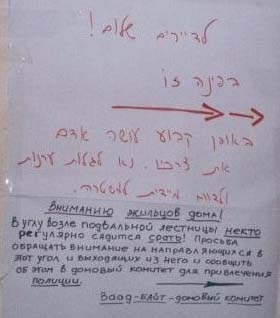 לדיירים שלום!
בפינה זו
באופן קבוע עושה אדם
את צרכיו. נא לגלות ערנות
ולדווח מיידית למשטרה.
Вниманию жильцов дома!
В углу возле подвальной лестницы некто
регулярно садится срать! Просьба
обращать внимание на направляющихся в
этот угол и выходящих из него и сообщить
об этом в домовый комитет для привлечения
полиции.
Ваад-байт - домовый комитет